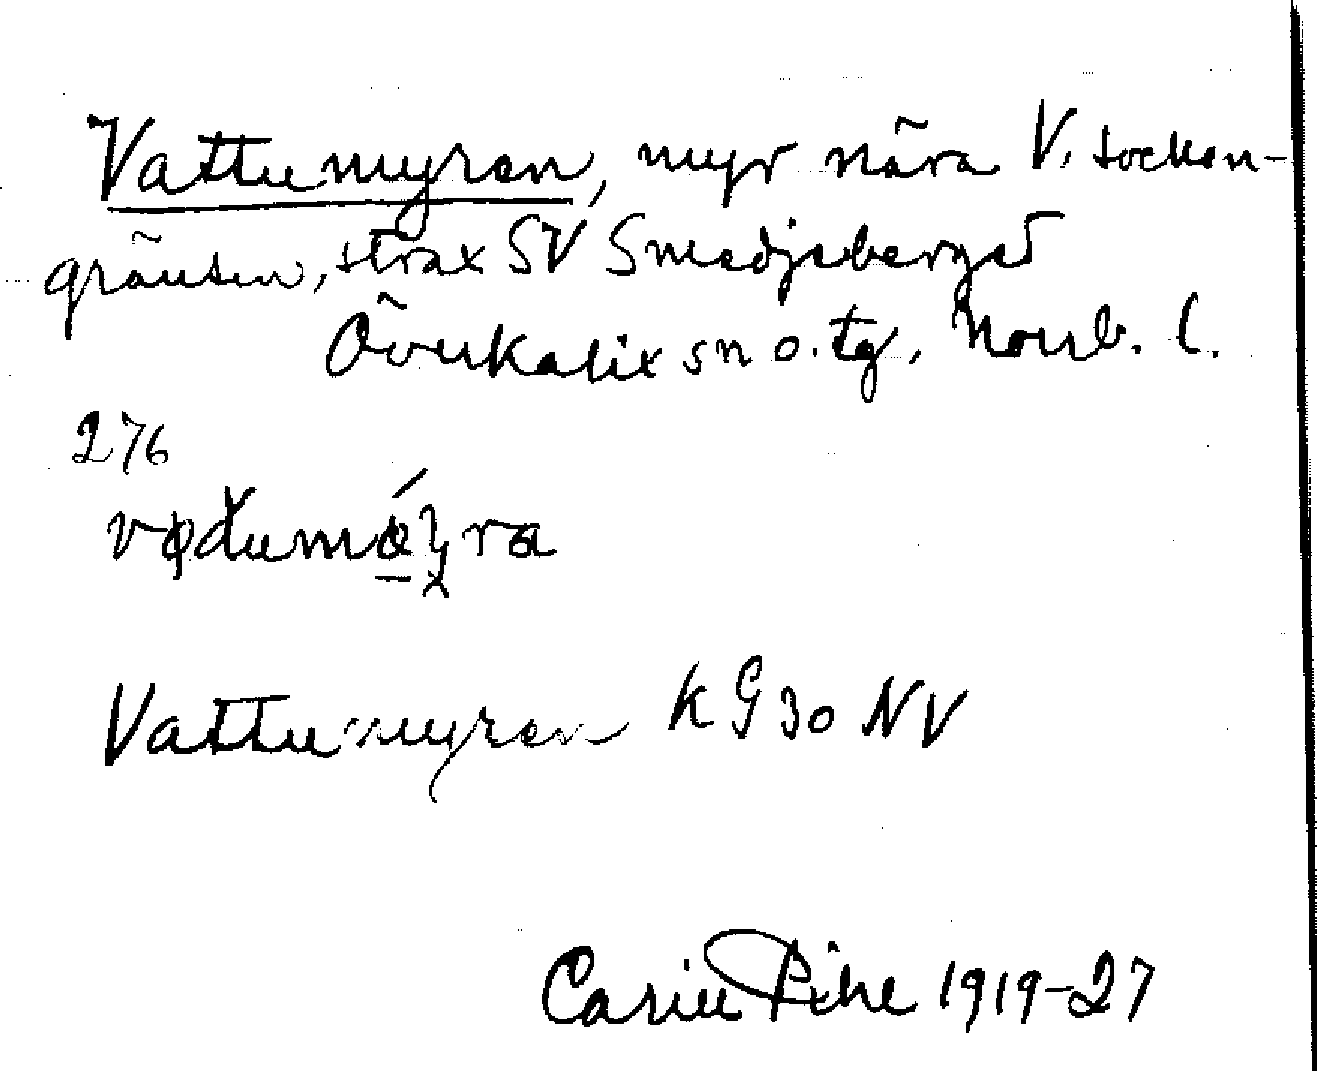 Vattumyren, myr nära V. socken-
gränsen, strax SV Smedjeberget
Överkalix sn o. tg, Norrb. l.
276
Vattumyren k G 30 NV
Carin Pihl 1919-27